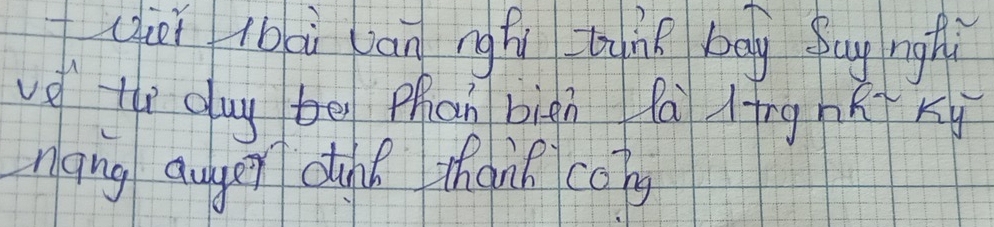 - Viết 1 bài văn nghị trình bày suy nghĩ
về tư duy be phản biện là 1 trg nh~ kỹ
năng quyết định thành công